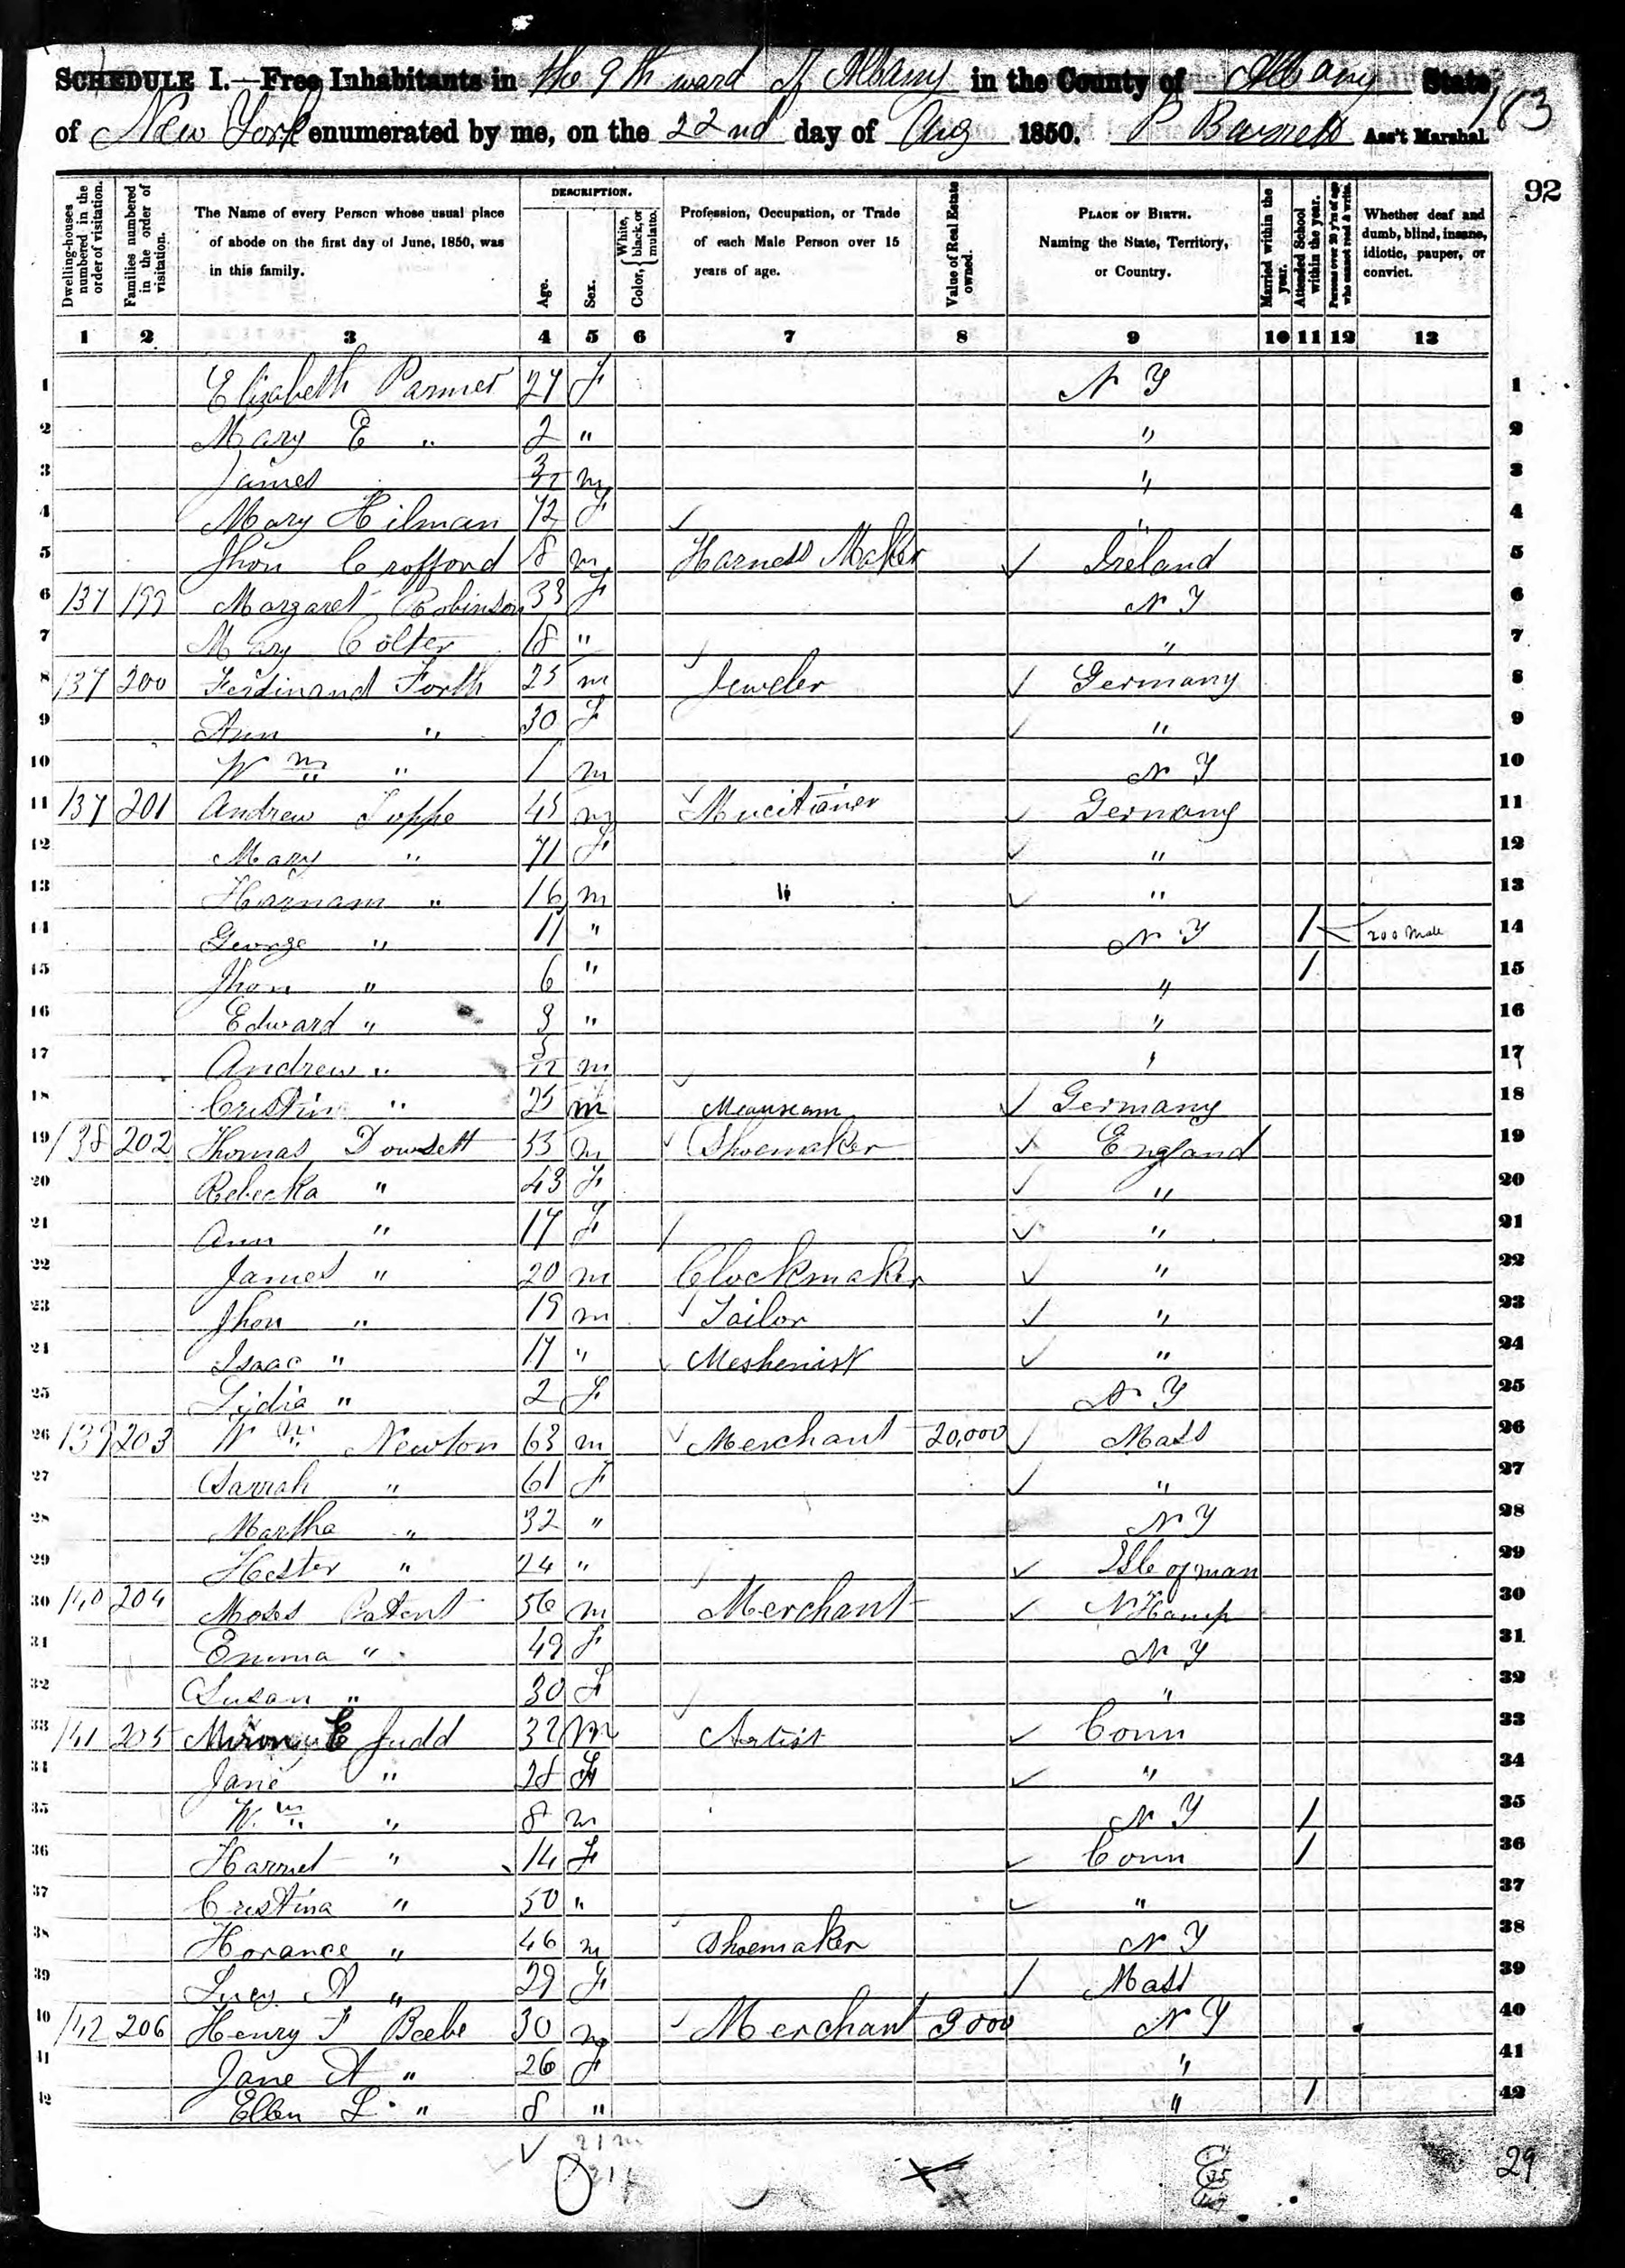 SCHEDULE I.—Free Inhabitants in the 9th ward of Albany in the County of Albany State
of New York enumerated by me, on the 22nd day of Aug 1850. P Barnett Ass't Marshal.
183
92
Dwelling-houses numbered in the order of visitation.
Families numbered in the order of visitation.
The Name of every Person whose usual place of abode on the first day of June, 1850, was in this family.
DESCRIPTION.
Age.
Sex.
Color, { White, black, or mulatto.
Profession, Occupation, or Trade of each Male Person over 15 years of age.
Value of Real Estate owned.
PLACE OF BIRTH. Naming the State, Territory, or Country.
Married within the year.
Attended School within the year.
Persons over 20 y'rs of age who cannot read & write.
Whether deaf and dumb, blind, insane, idiotic, pauper, or convict.
1 2 3 4 5 6 7 8 9 10 11 12 13
1 Elizabeth Parmer 27 F N Y 1
2 Mary E " 2 " " 2
3 James 3/12 m " 3
4 Mary Hilman 72 F " 4
5 Jhon Crofford 18 m Harness Maker Ireland 5
6 137 199 Margaret Robinson 33 F N Y 6
7 Mary Colter 18 " " 7
8 137 200 Ferdinand Forth 25 m Jeweler Germany 8
9 Ann " 30 F " 9
10 Wm " 1 m N Y 10
11 137 201 Andrew Toppe 45 m Mucitianer Germany 11
12 Mary " 71 F " 12
13 Harnam " 16 m " " 13
14 George " 11 " N Y 1 200 Male 14
15 Jhon " 6 " " 1 15
16 Edward " 3 " " 16
17 Andrew " 3/12 m " 17
18 Cristin " 25 m Germany 18
19 138 202 Thomas Dowsett 53 m Shoemaker England 19
20 Rebecka " 43 F " 20
21 Ann " 17 F " 21
22 James " 20 m Clockmaker " 22
23 Jhon " 19 m Tailor " 23
24 Isaac " 17 " Meshenist " 24
25 Lidia " 2 F N Y 25
26 139 203 Wm Newton 63 m Merchant 20,000 Mass 26
27 Sarrah " 61 F " 27
28 Martha " 32 " N Y 28
29 Hester " 24 " Isle of man 29
30 140 204 Moses Patent 56 m Merchant N Hamp 30
31 Emma " 49 F N Y 31
32 Susan " 30 F " 32
33 141 205 Miron C Judd 32 M Artist Conn 33
34 Jane " 28 F " 34
35 Wm " 8 m N Y 1 35
36 Harriet " 14 F Conn 1 36
37 Cristina " 50 " " 37
38 Horance " 46 m Shoemaker N Y 38
39 Lucy A " 29 F Mass 39
40 142 206 Henry F Beebe 30 m Merchant 3000 N Y 40
41 Jane A " 26 F " 41
42 Ellen L " 8 " " 1 42
21 m
21 f
29